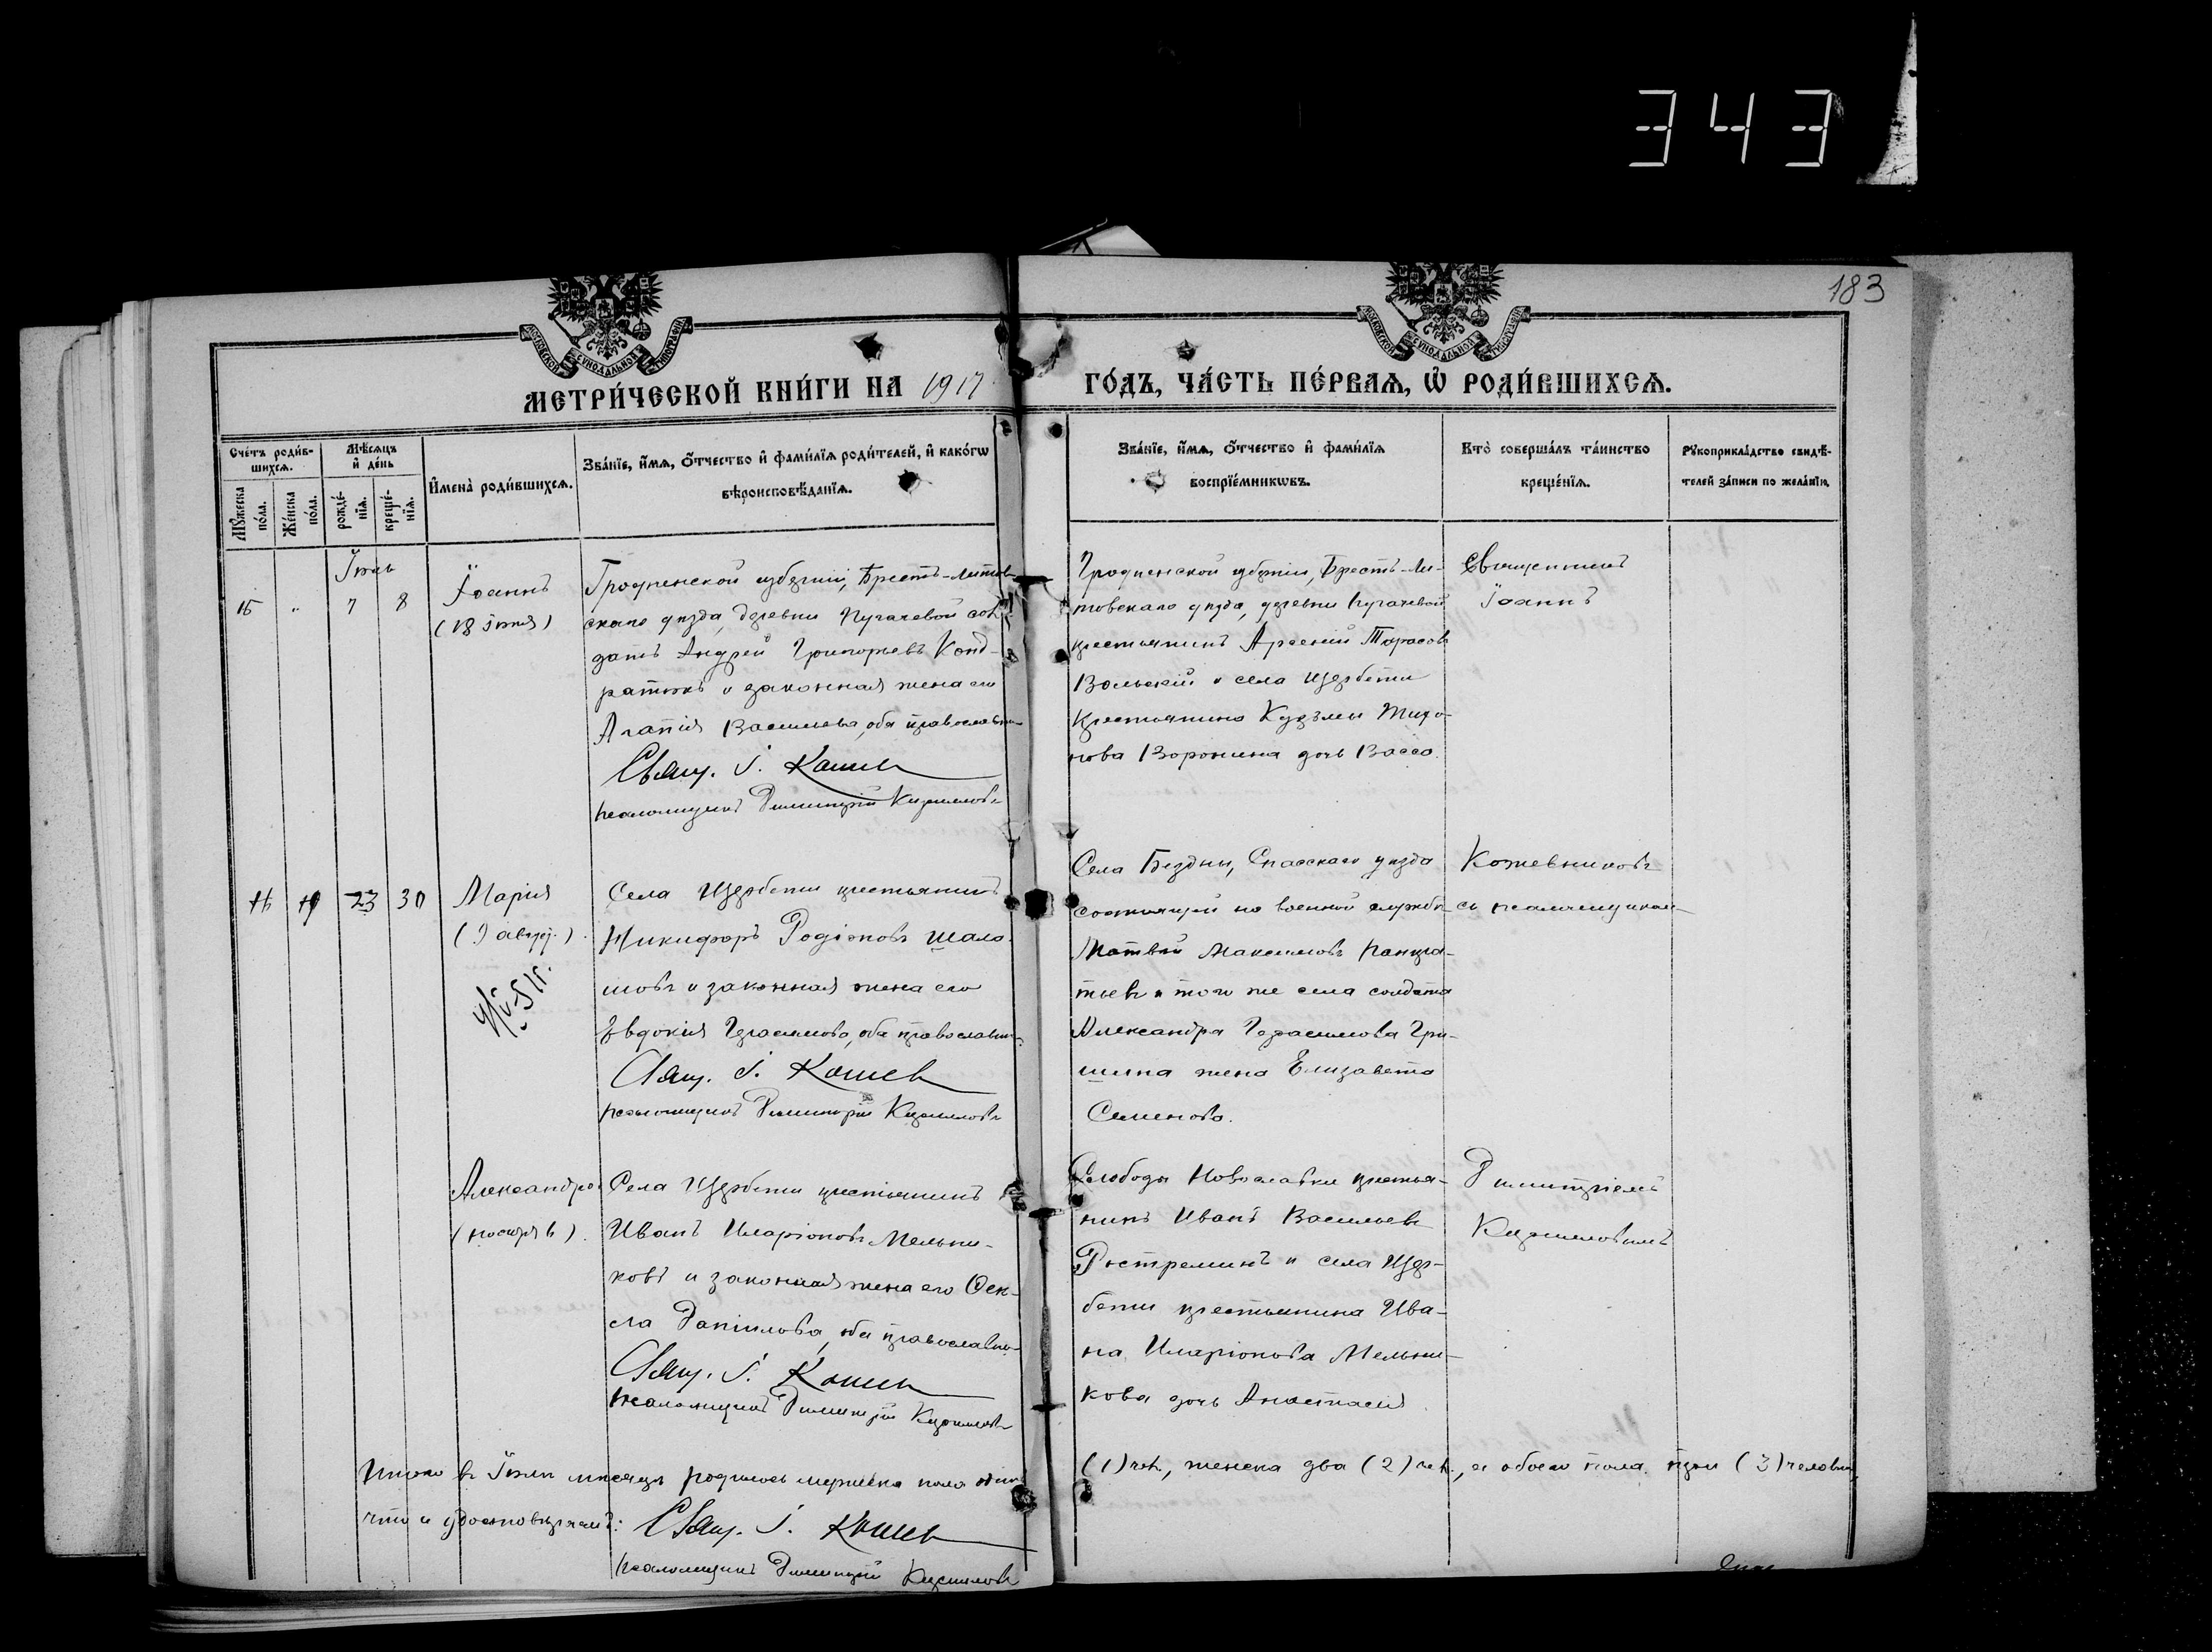 343
183
МОСКОВСКОЙ СУНОДАЛЬНОЙ ТИПОГРАФІИ
МОСКОВСКОЙ СУНОДАЛЬНОЙ ТИПОГРАФІИ
МЕТРИ́ЧЕСКОЙ КНИ́ГИ НА 1917
ГО́ДЪ, ЧА́СТЬ ПЕ́РВАѦ, Ѡ҆ РОДИ́ВШИХСѦ.
Сче́тъ роди́в-
шихсѧ.
Мѣ́сѧцъ
и҆ де́нь
Мꙋжеска
по́ла.
Же́нска
по́ла.
рожде́-
нїѧ.
креще́-
нїѧ.
И҆мена̀ роди́вшихсѧ.
Зва́нїе, и҆́мѧ, ѻ҆́тчество и҆ фами́лїѧ роди́телей, и҆ како́гѡ
вѣроисповѣ́данїѧ.
Зва́нїе, и҆́мѧ, ѻ҆́тчество и҆ фами́лїѧ
воспрїе́мникѡвъ.
Кто̀ соверша́лъ та́инство
креще́нїѧ.
Рꙋкоприкла́дство свидѣ́-
телей за́писи по жела́нїю.
Іюль
15 " 7 8
Іоаннъ
(18 іюля)
Гродненской губерніи, Брестъ-Литов-
скаго уѣзда, деревни Пугачевой сол-
датъ Андрей Григорьевъ Конд-
ратюкъ и законная жена его
Агапія Васильева, оба православн.
Свящ. І. Кошев
псаломщикъ Димитрій Кирилловъ
Гродненской губерніи, Брестъ-Ли-
товскаго уѣзда, деревни Пугачевой
крестьянинъ Арсеній Тарасов
Вольскій и села Щербети
крестьянина Кузьмы
Воронина дочь Васса.
Священникъ
Іоаннъ
19 23 30
Марія
( августа)
Села Щербети крестьянинъ
Никифоръ Родіоновъ Шало-
шовъ и законная жена его
Евдокія Герасимова, оба православн.
Свящ. І. Кошев
псаломщикъ Димитрій Кирилловъ
Села Бездны, Спасскаго уѣзда
состоящій на военной службѣ
Матвѣй Максимовъ Панкра-
тьевъ и того же села солдата
Александра Герасимова Гри-
шина жена Елизавета
Семенова.
Кожевниковъ
съ псаломщикомъ
Александра
(ноября 6).
Села Щербети крестьянинъ
Иванъ Иларіоновъ Мельни-
ковъ и законная жена его Ѳек-
ла Даніилова, оба православн.
Свящ. І. Кошев
псаломщикъ Димитрій Кирилловъ
Слободы Новославки крестья-
нинъ Иванъ Васильевъ
и села Щер-
бети крестьянина Ива-
на Иларіонова Мельни-
кова дочь Анастасія
Димитріемъ
Кирилловымъ
Итого въ Іюлѣ мѣсяцѣ родилось мужеска пола одинъ (1) чел., женска два (2) чел., а обоего пола три (3) человѣк.
что и удостовѣряемъ: Свящ. І. Кошев
псаломщикъ Димитрій Кирилловъ